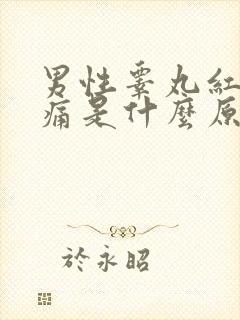 男性睪丸紅
痛是什麼原
於永昭